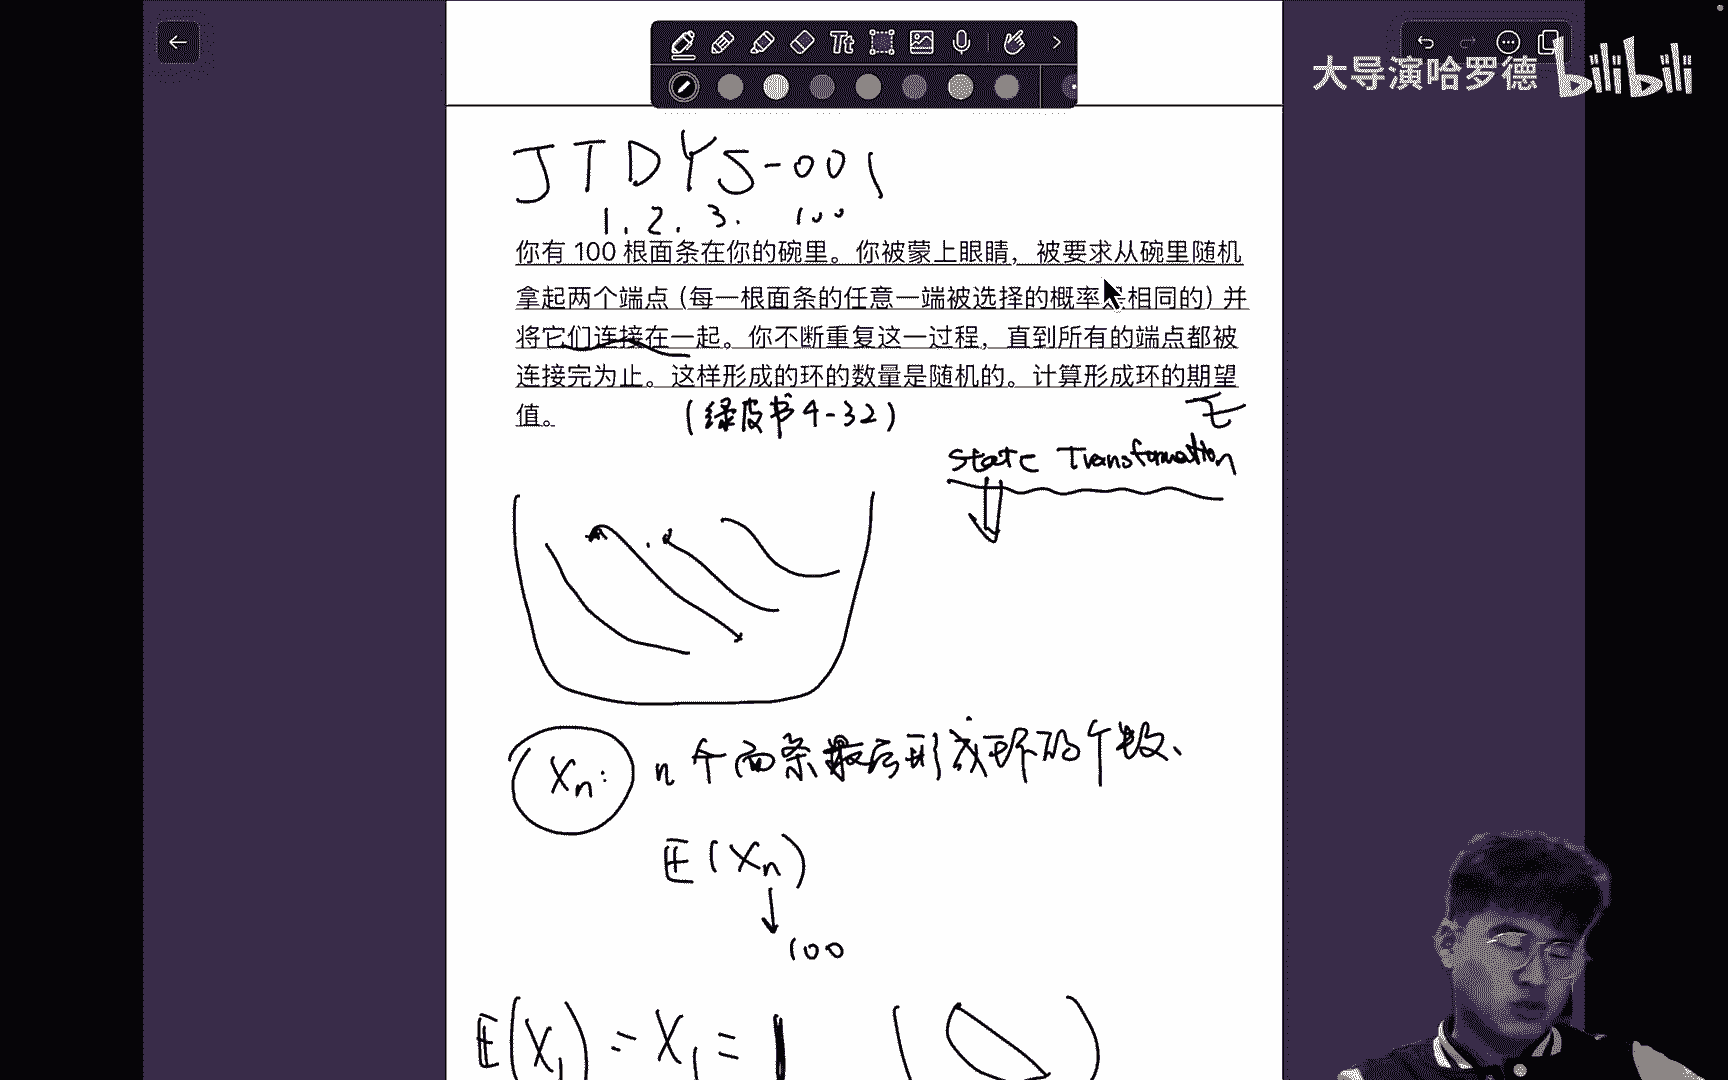 Tt
大导演哈罗德 bilibili
JTDYS-001
1. 2. 3. 100
你有 100 根面条在你的碗里。你被蒙上眼睛，被要求从碗里随机
拿起两个端点（每一根面条的任意一端被选择的概率是相同的）并
将它们连接在一起。你不断重复这一过程，直到所有的端点都被
连接完为止。这样形成的环的数量是随机的。计算形成环的期望
值。
(绿皮书4-32)
E
State Transformation
Xn: n个面条最后形成环的个数、
E(Xn)
↓
100
E(X1) = X1 = 1